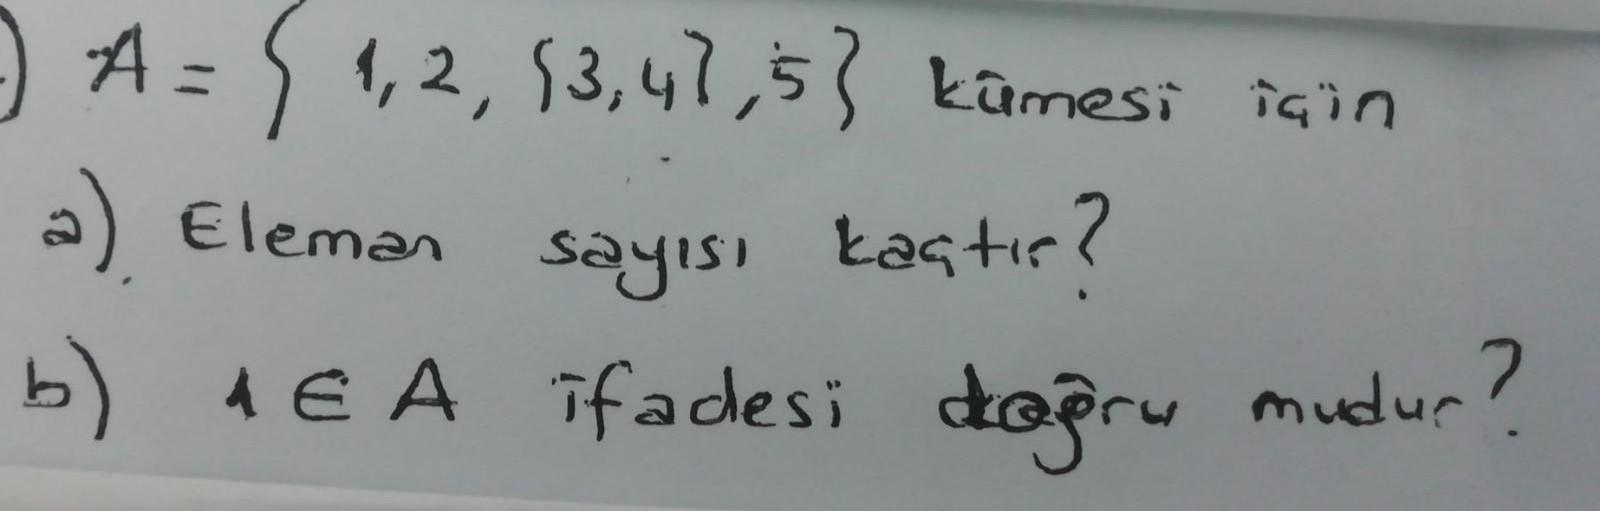 ) A = { 1, 2, {3, 4}, 5 } kümesi için
a) Eleman sayısı kaçtır?
b) 1 ∈ A ifadesi doğru mudur?